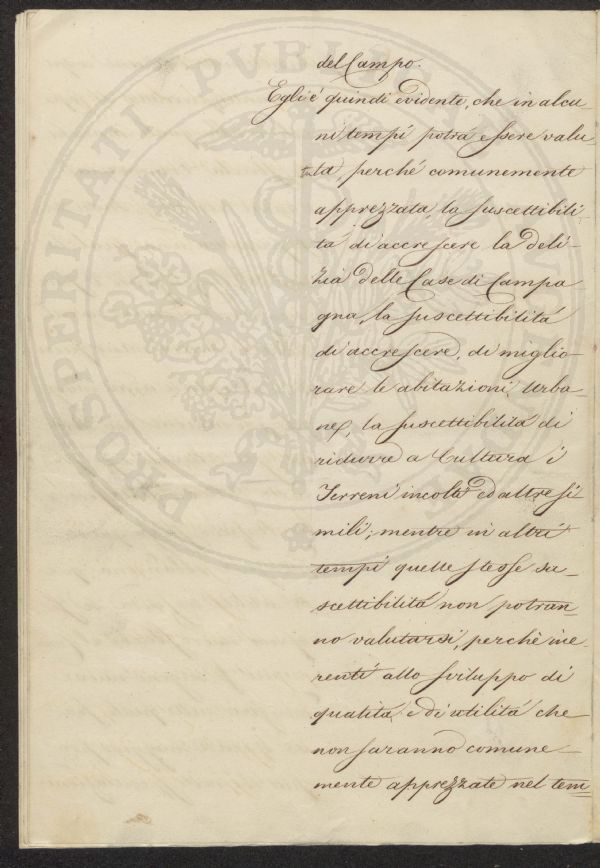 del Campo.
Egli é quindi evidente, che in alcu
ni tempi potrá essere valu
tata, perché comunemente
apprezzata, la suscettibili
tá di accrescere la deli-
zia delle Case di Campa
gna, la suscettibilitá
di accrescere, di miglio-
rare le abitazioni Urba-
ne, la suscettibilitá di
ridurre a Cultura i
Terreni incolti ed altre si
mili; mentre in altri
tempi quelle stesse su-
scettibilitá non potran-
no valutarsi, perchè ine-
renti allo sviluppo di
qualitá e di utilitá che
non saranno comune-
mente apprezzate nel tem=
PROSPERITATI PVBLICAE